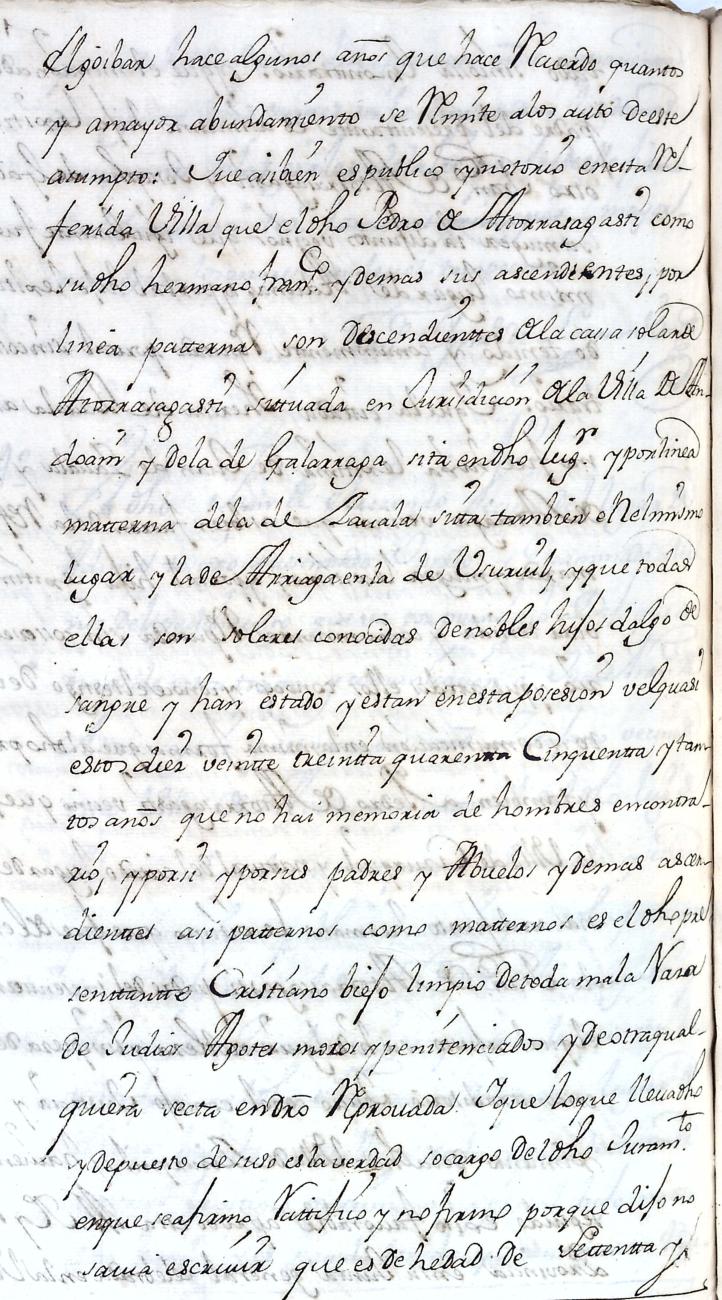 Elgoibar hace algunos años que hace Rcuerdo quantos
y amayor abundamiento se Rmite alos auto deeste
asumpto: Que asibien es publico y notorio enesta Re-
ferida Villa que el dho Pedro de Atorrasagasti como
su dho hermano Franco. y demas sus ascendientes, por
linea patterna son descendienttes de la cassa solar de
Atorrasagasti sittuada en Jurisdicion de la Villa de An-
doain y de la de Galarraga sita en dho lugr. y por linea
matterna dela de Zauala sitta tambien en el mismo
lugar y la de Arriaga en la de Usuruil, y que todas
ellas son solares conocidas de nobles hijos dalgo de
sangre y han estado y estan en esta posesion velquasi
estos diez veintte treintta quarentta Cinquentta y tan-
tos años que no hai memoria de hombres en contra-
rio, y por si y por sus padres y Abuelos y demas ascen-
dienttes asi patternos como matternos es el dho pre
senttantte Cristiano biejo limpio de toda mala Raza
de Judios Agotes moros y penitenciados y de otra qual-
quiera secta en dro Reprouada. Y que lo que lleua dho
y depuesto de suso es la verdad so cargo del dho Juramto.
en que se afirmo Rattifico y no firmo porque dijo no
sauia escriuir que es de hedad de Settentta y